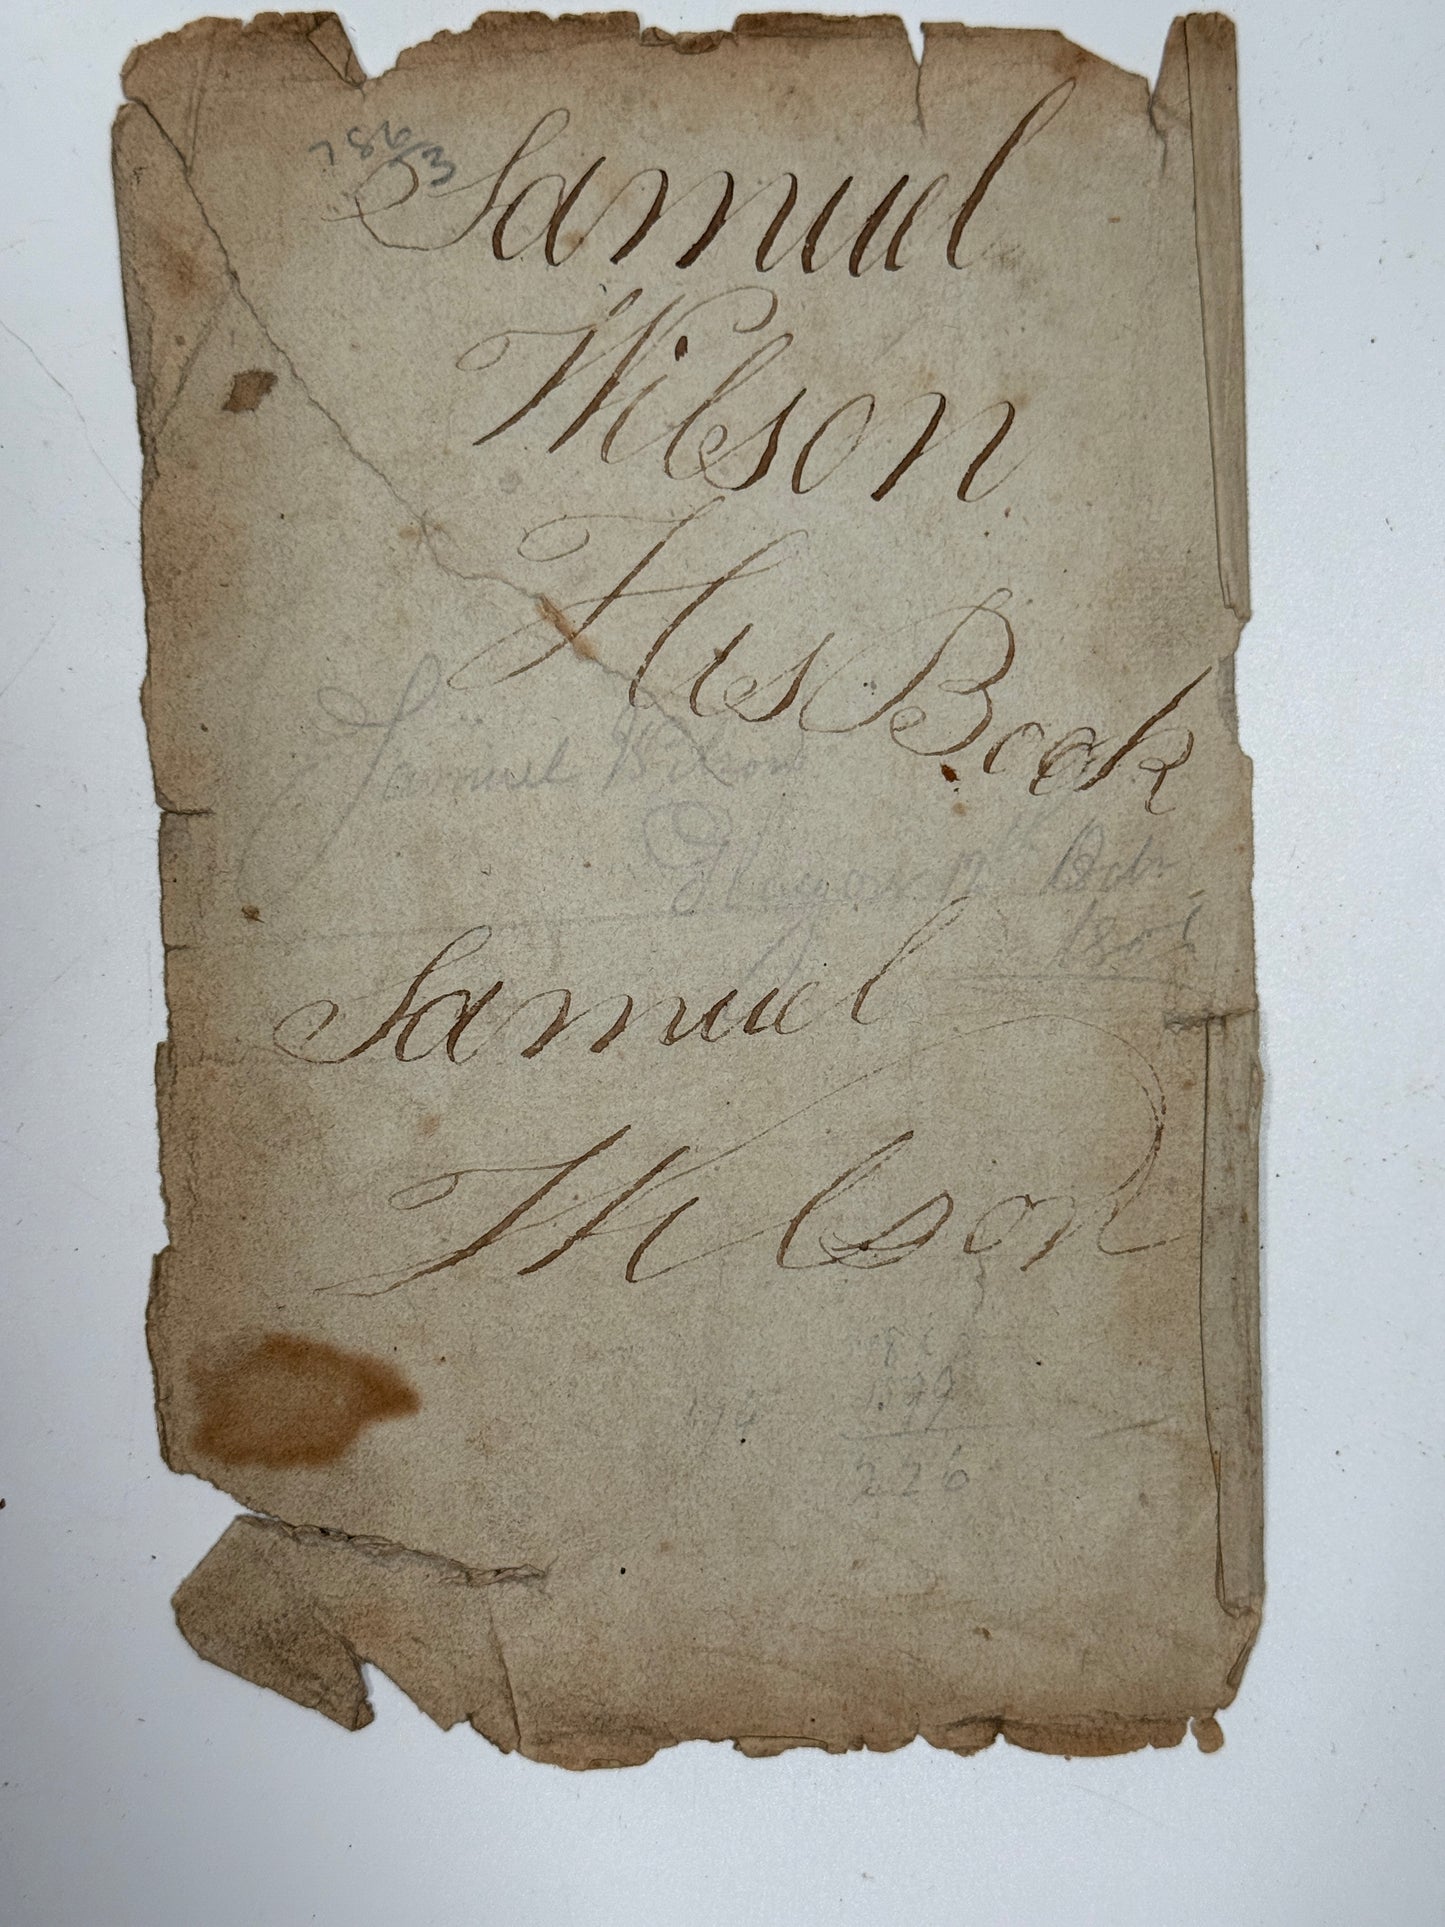 786
53
Samuel
Wilson
His Book
Samuel Wilson
Glasgow 12th
Samuel
Wilson
226